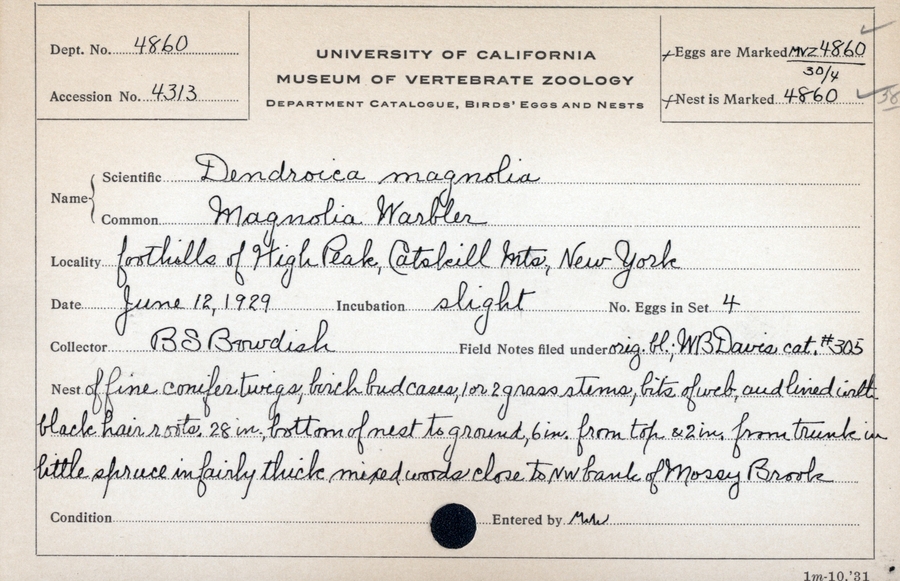 Dept. No. 4860
Accession No. 4313
UNIVERSITY OF CALIFORNIA
MUSEUM OF VERTEBRATE ZOOLOGY
DEPARTMENT CATALOGUE, BIRDS' EGGS AND NESTS
Eggs are Marked MVZ 4860
30/4
Nest is Marked 4860
Name
Scientific Dendroica magnolia
Common Magnolia Warbler
Locality foothills of High Peak, Catskill Mts, New York
Date June 12, 1929 Incubation slight No. Eggs in Set 4
Collector B S Bowdish Field Notes filed under orig. bl.; WB Davis cat. #305
Nest of fine conifer twigs, birch bud cases, 1 or 2 grass stems, bits of web, and lined with
black hair roots. 28 in., bottom of nest to ground, 6 in. from top & 2 in. from trunk in
little spruce in fairly thick mixed woods close to NW bank of Mossy Brook
Condition Entered by
1m-10,'31